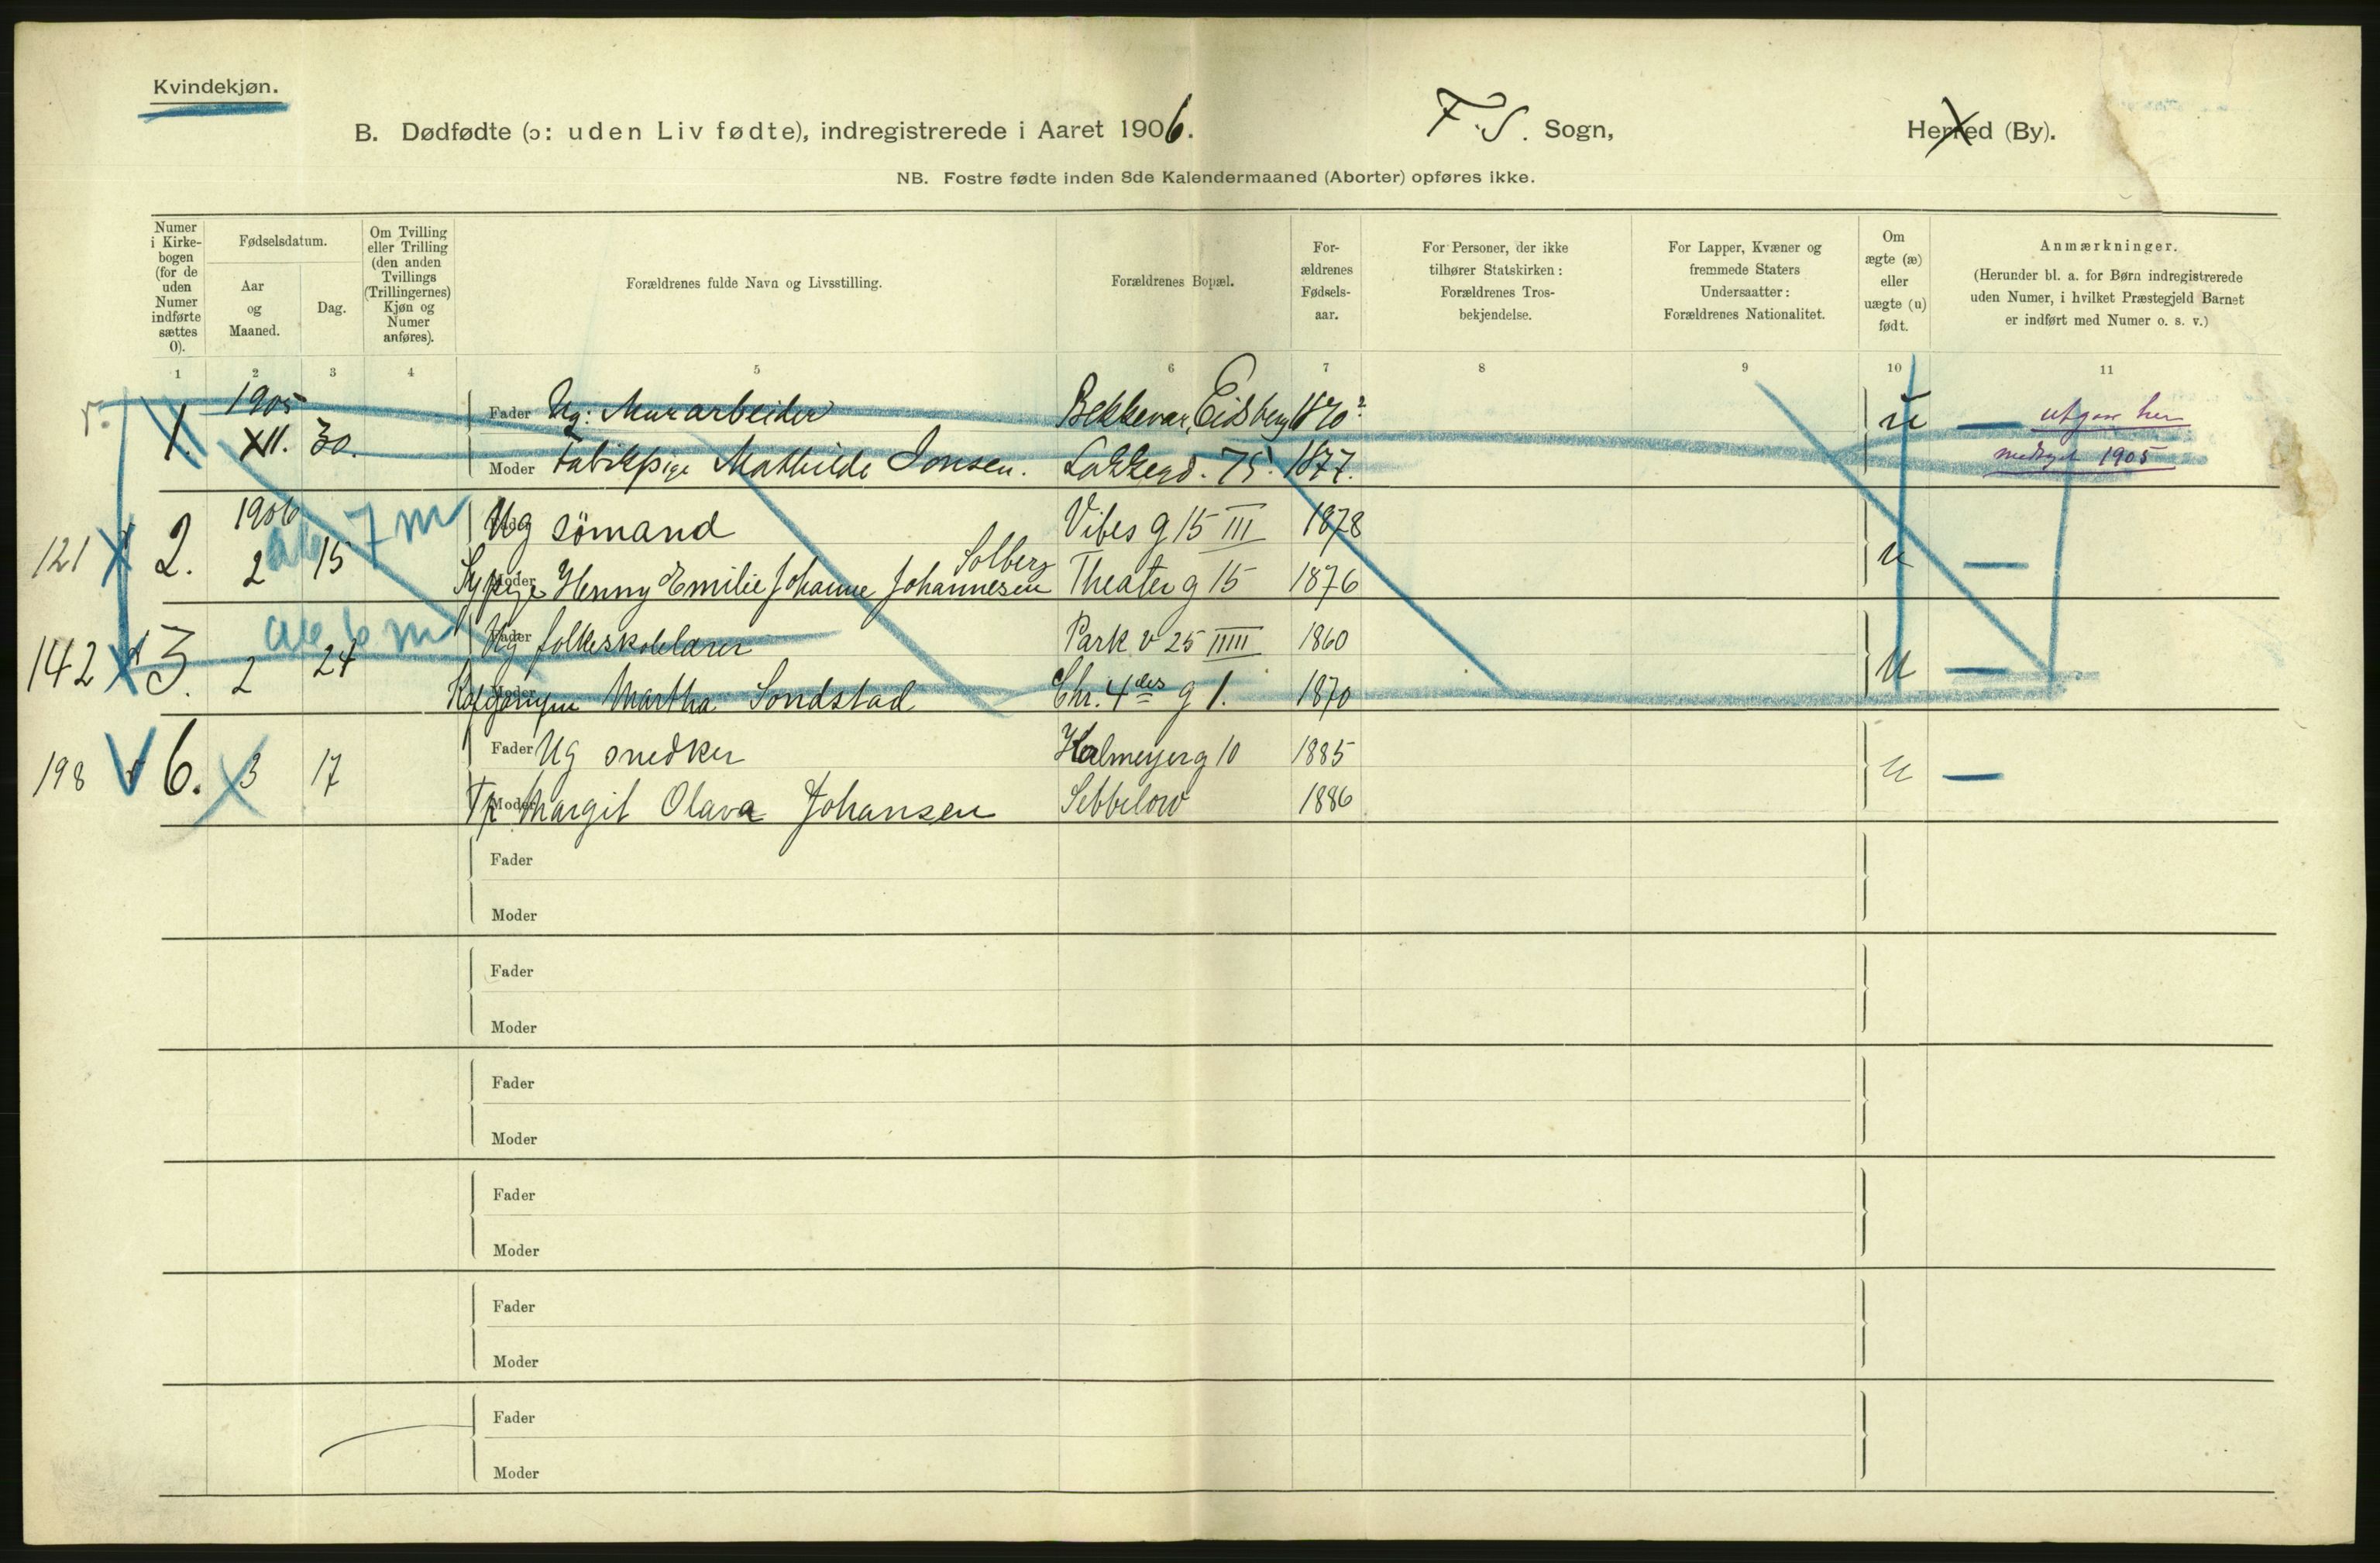 Kvindekjøn.
B. Dødfødte (ɔ: uden Liv fødte), indregistrerede i Aaret 1906. F. S. Sogn, Herred (By).
NB. Fostre fødte inden 8de Kalendermaaned (Aborter) opføres ikke.
Numer i Kirke-
bogen
(for de
uden
Numer
indførte
sættes
0).
Fødselsdatum.
Aar
og
Maaned.
Dag.
Om Tvilling
eller Trilling
(den anden
Tvillings
(Trillingernes)
Kjøn og
Numer
anføres).
Forældrenes fulde Navn og Livsstilling.
Forældrenes Bopæl.
For-
ældrenes
Fødsels-
aar.
For Personer, der ikke
tilhører Statskirken:
Forældrenes Tros-
bekjendelse.
For Lapper, Kvæner og
fremmede Staters
Undersaatter:
Forældrenes Nationalitet.
Om
ægte (æ)
eller
uægte (u)
født.
Anmærkninger.
(Herunder bl. a. for Børn indregistrerede
uden Numer, i hvilket Præstegjeld Barnet
er indført med Numer o. s. v.)
1 2 3 4 5 6 7 8 9 10 11
1905
1. XII. 30. Fader Ug: Murarbeider Bekkevar, Eidsberg 1870? u — utgaar her
Moder Fabrikpige Mathilde Jonsen. Lakkegd. 75. 1877. medtaget 1905
1906 ab 7 m
121 2. 2 15 Fader Ug sömand Vibes g 15 III 1878 u —
Solberg
Moder Sypige Henny Emilie Johanne Johannesen Theater g 15 1876
ab 6 m
142 3. 2 24 Fader Ug folkeskolelærer Park v 25 IIII 1860 u —
Moder Martha Sondstad Chr. 4des g 1. 1870
198 6. 3 17 Fader Ug snedker Holmeyerg 10 1885 u —
Moder Tp Margit Olava Johansen Sebbelow 1886
Fader
Moder
Fader
Moder
Fader
Moder
Fader
Moder
Fader
Moder
Fader
Moder